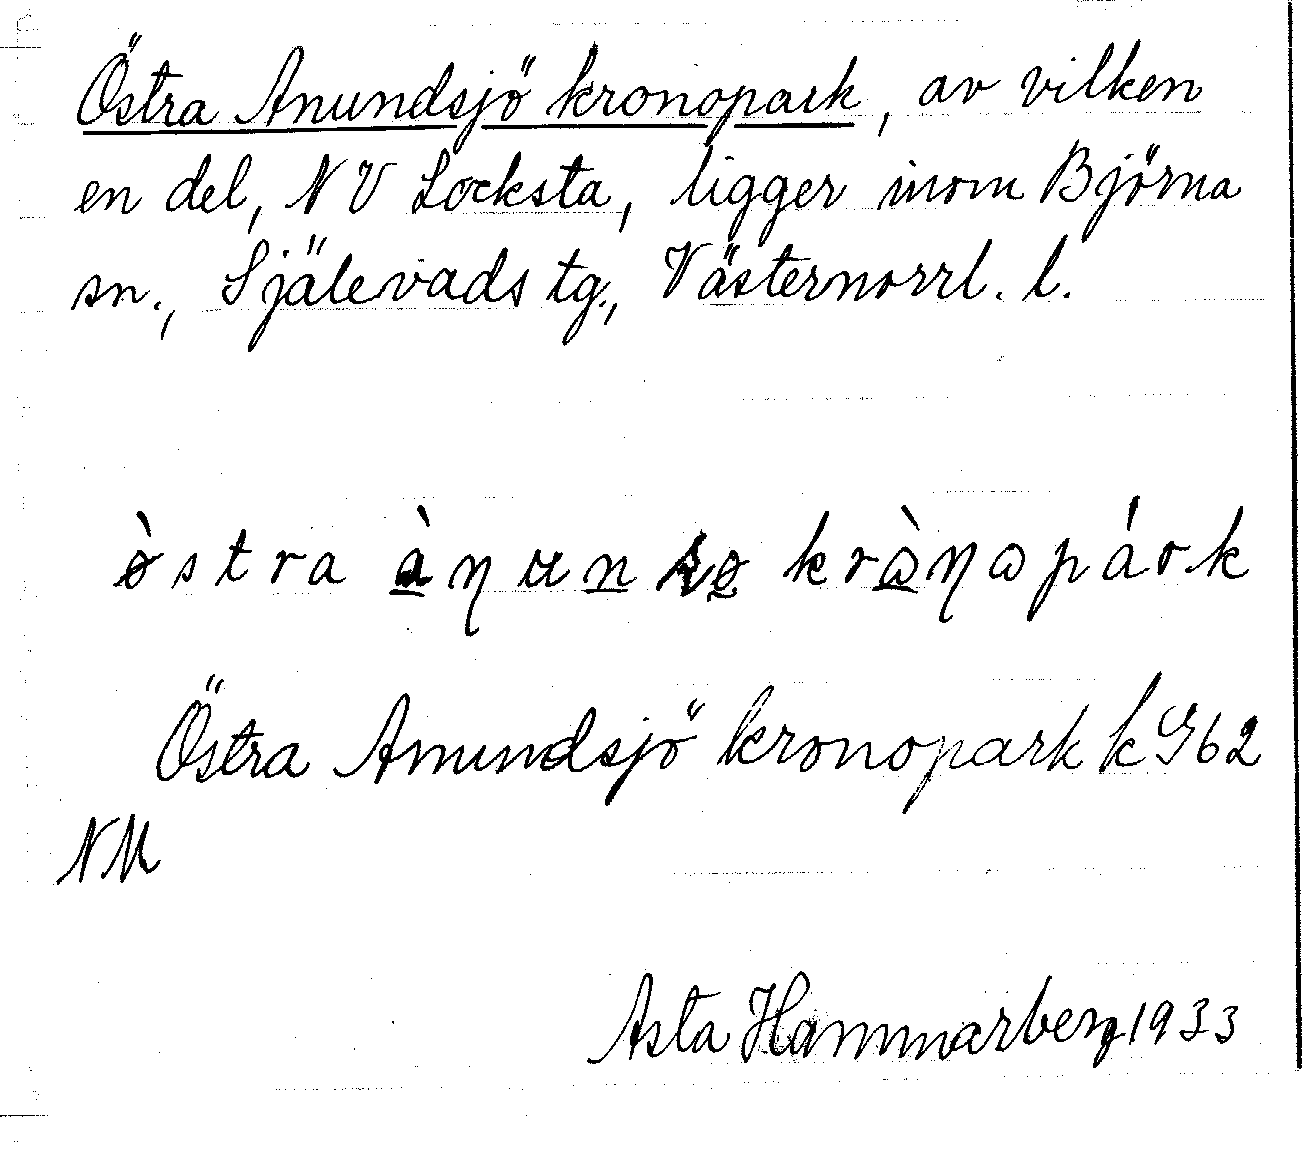 Östra Anundsjö kronopark, av vilken
en del, NV Locksta, ligger inom Björna
sn., Själevads tg., Västernorrl. l.
östra kronopark
Östra Anundsjö kronopark k G62
NM
Asta Hammarberg 1933